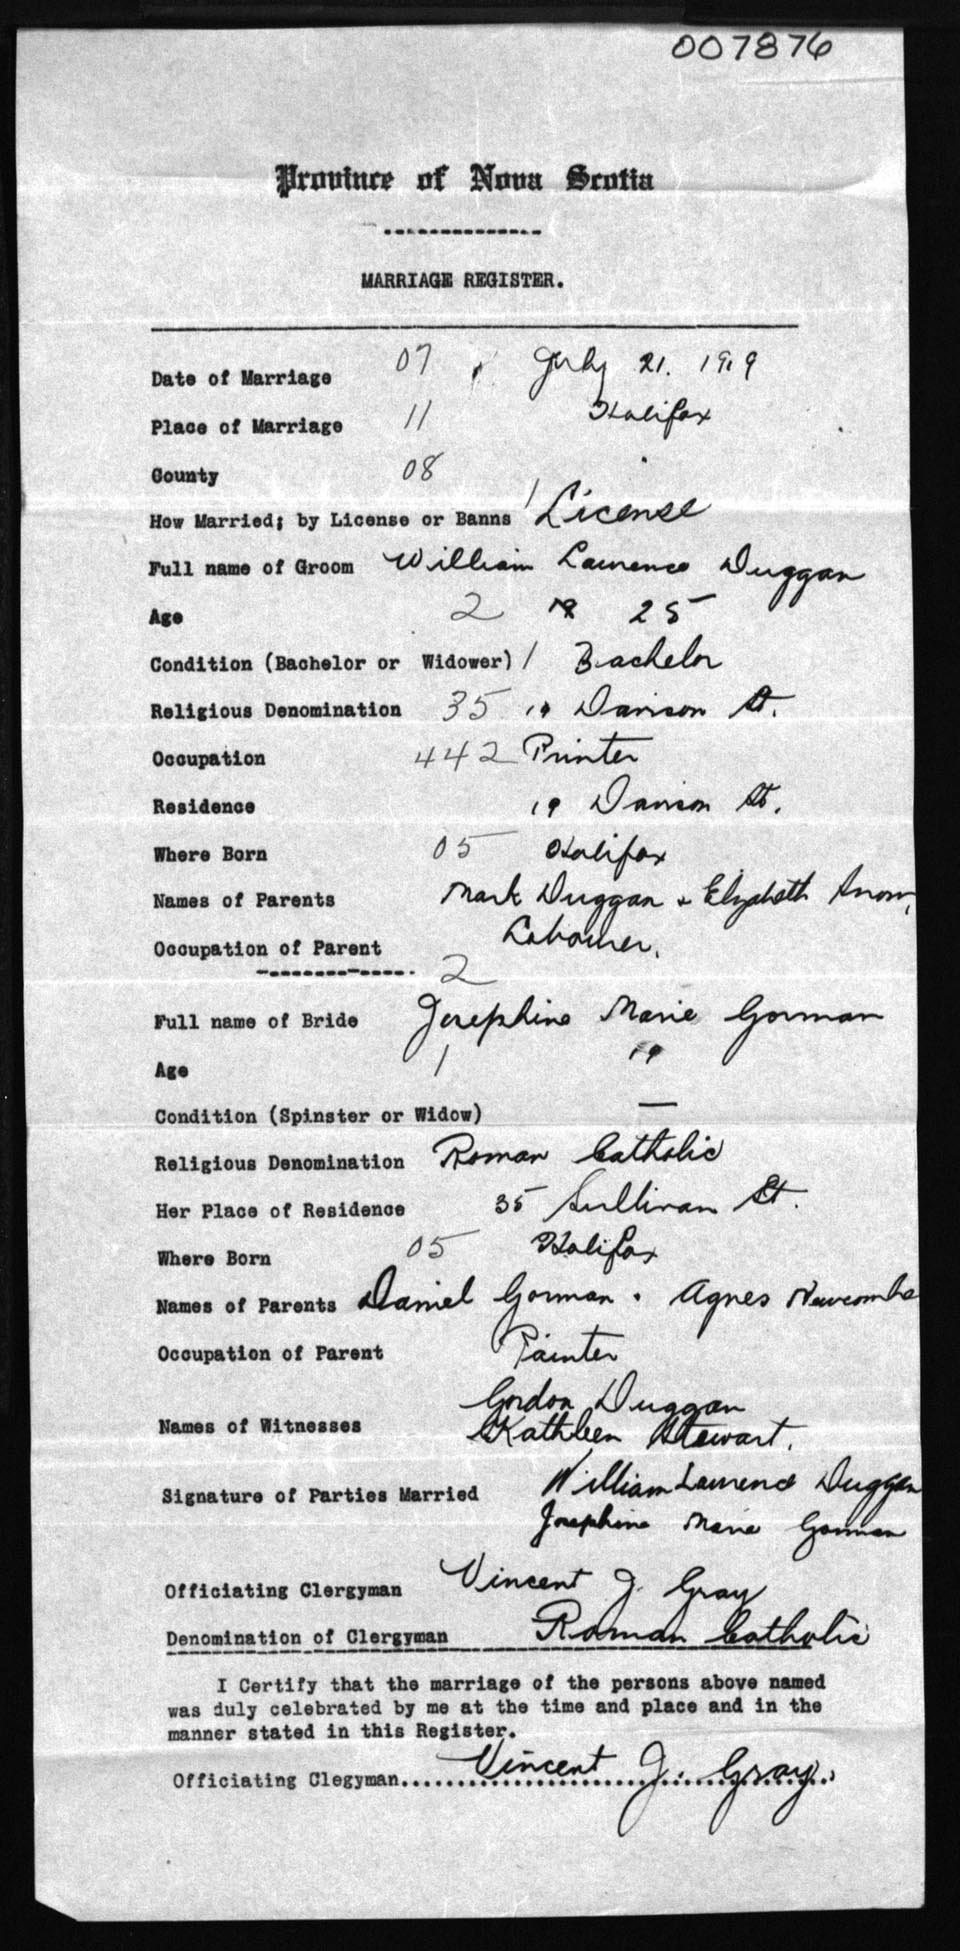 007876
Province of Nova Scotia
MARRIAGE REGISTER.
Date of Marriage 07 July 21. 1919
Place of Marriage 11 Halifax
County 08
How Married; by License or Banns 1 License
Full name of Groom William Laurence Duggan
Age 2 25
Condition (Bachelor or Widower) 1 Bachelor
Religious Denomination 35 19 Davison St.
Occupation 442 Printer
Residence 19 Davison St.
Where Born 05 Halifax
Names of Parents Mark Duggan + Elizabeth Snow,
Occupation of Parent Labourer.
2
Full name of Bride Josephine Marie Gorman
Age 1 19
Condition (Spinster or Widow) —
Religious Denomination Roman Catholic
Her Place of Residence 35 Sullivan St.
Where Born 05 Halifax
Names of Parents Daniel Gorman . Agnes Newcombe
Occupation of Parent Painter
Gordon Duggan
Names of Witnesses Kathleen Stewart.
Signature of Parties Married William Laurence Duggan
Josephine Marie Gorman
Officiating Clergyman Vincent J. Gray
Denomination of Clergyman Roman Catholic
I Certify that the marriage of the persons above named
was duly celebrated by me at the time and place and in the
manner stated in this Register.
Officiating Clegyman Vincent J. Gray.